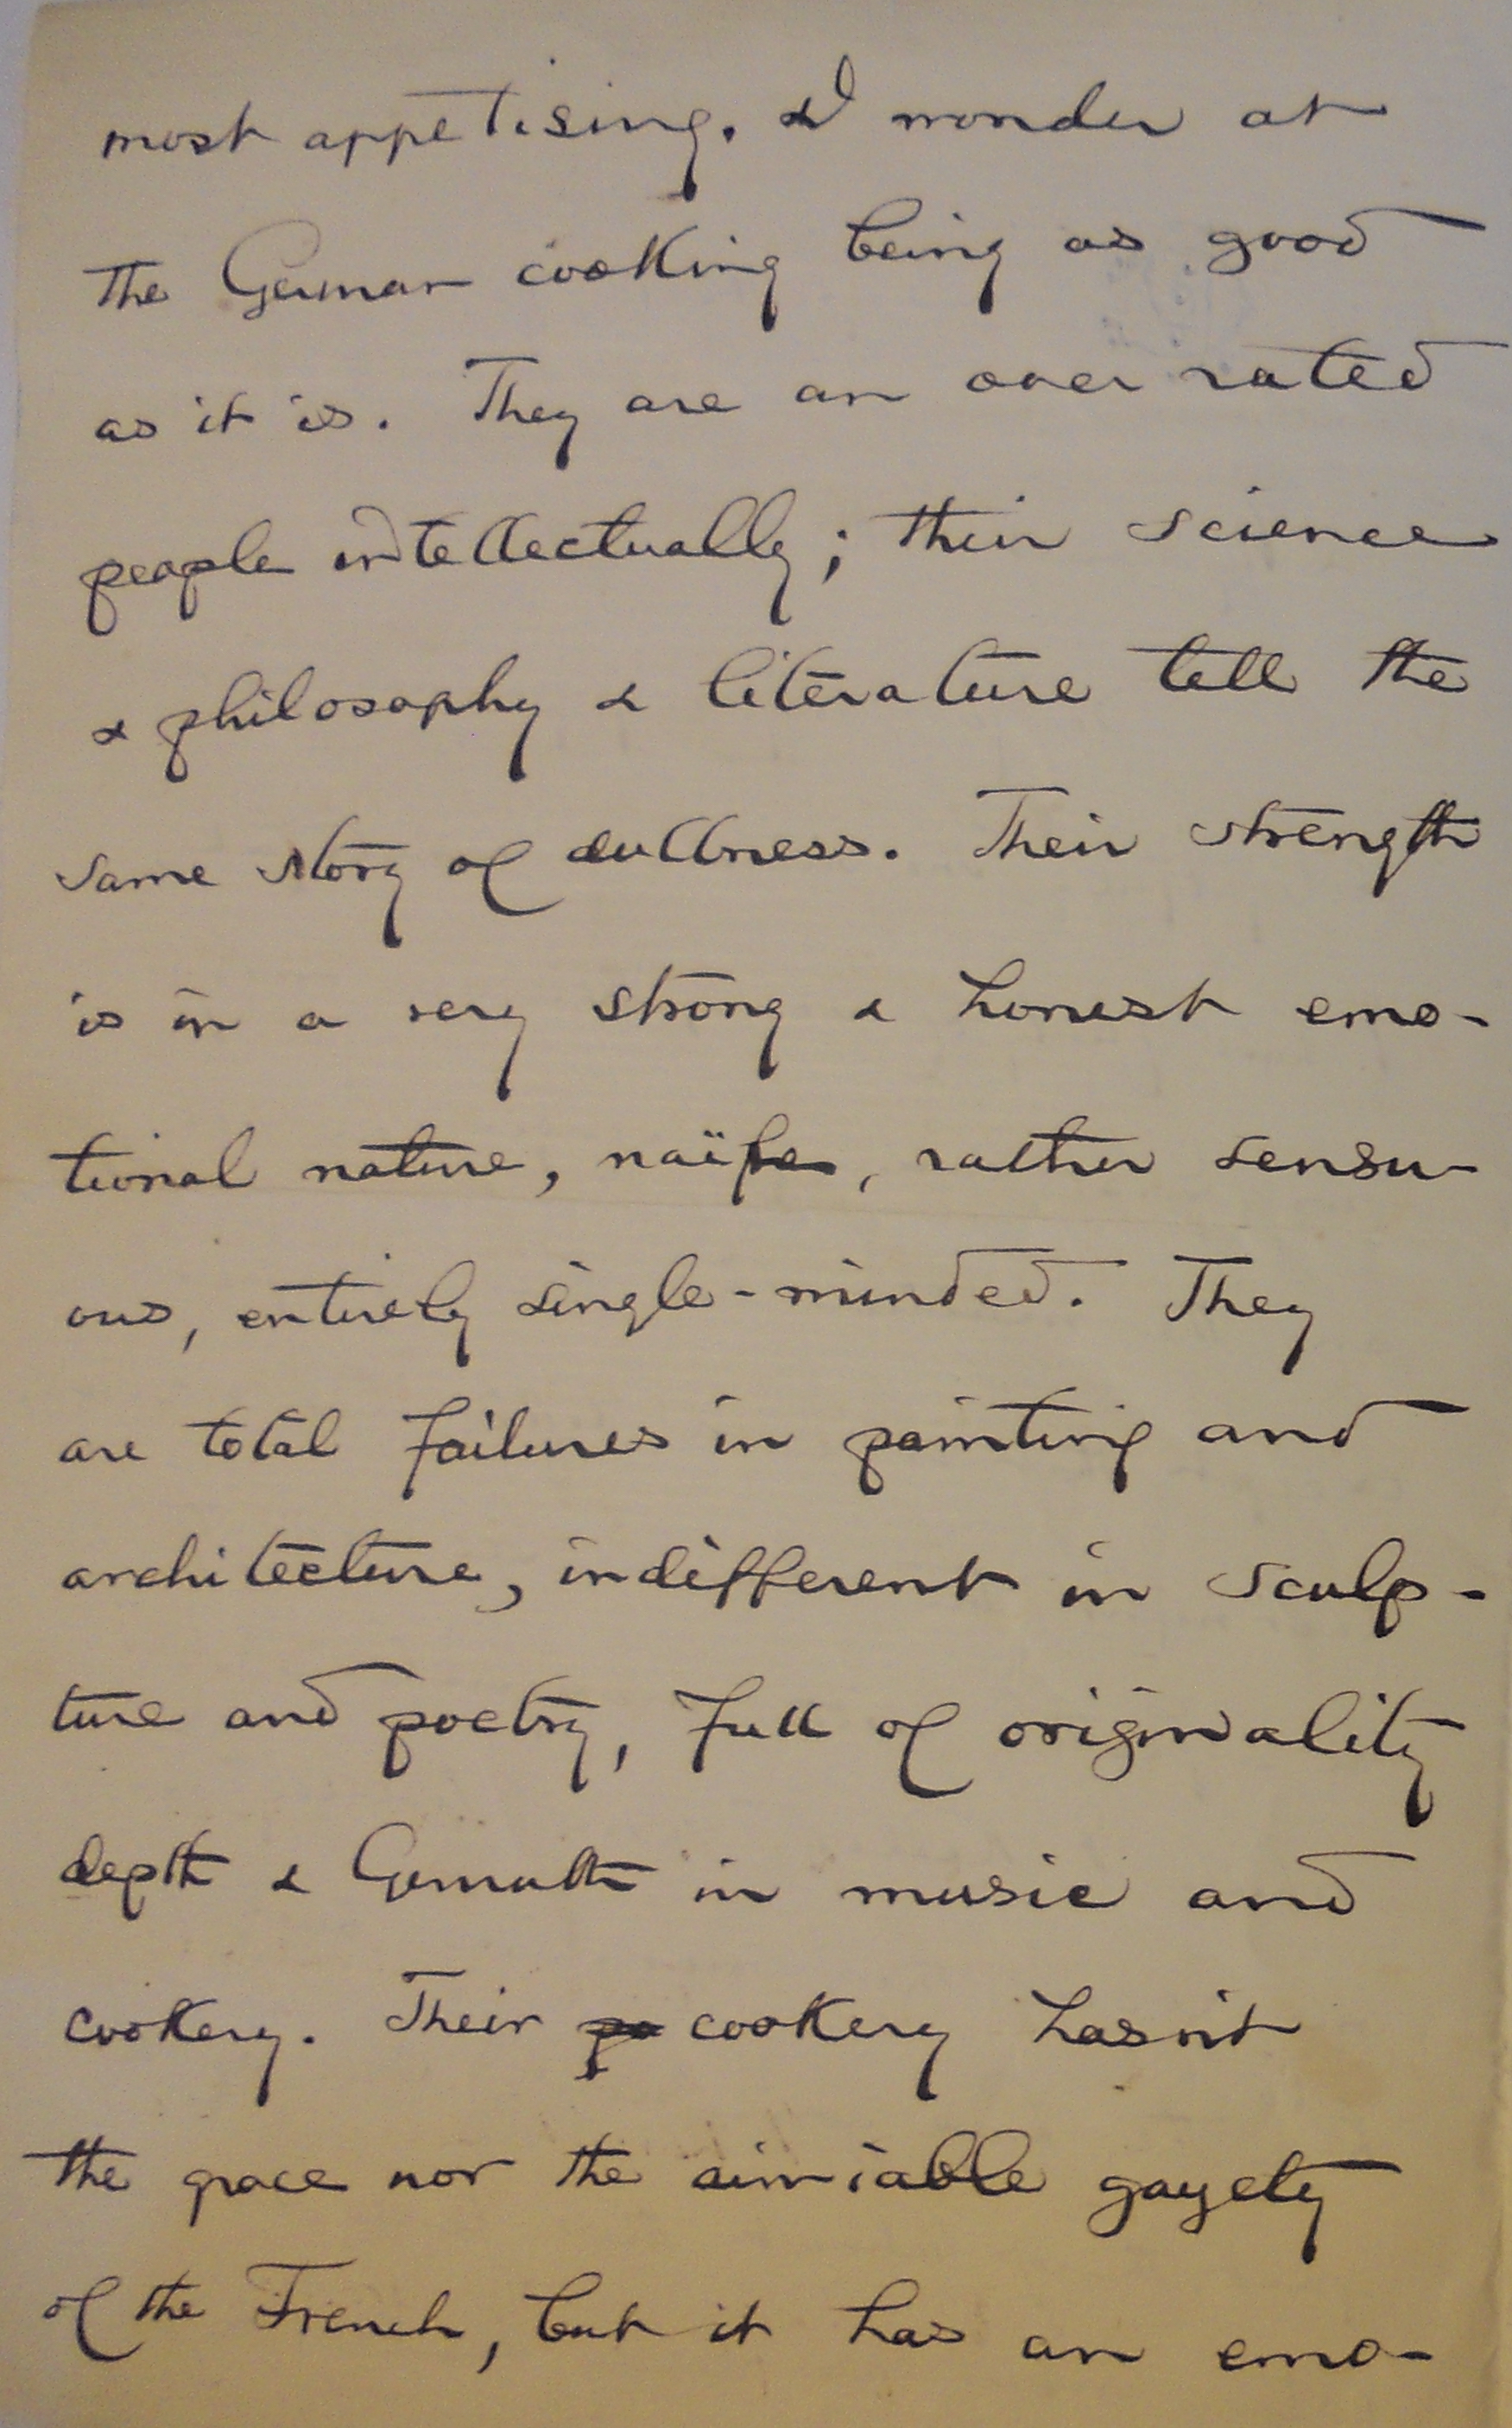 most appetising. & I wonder at
the German cooking being as good
as it is. They are an over rated
people intellectually; their science
& philosophy & literature tell the
same story of dullness. Their strength
is in a very strong & honest emo-
tional nature, naïfe, rather sensu-
ous, entirely single-minded. They
are total failures in painting and
architecture, indifferent in sculp-
ture and poetry, full of originality
depth & Gemuth in music and
cookery. Their cookery hasn't
the grace nor the aimiable gayety
of the French, but it has an emo-